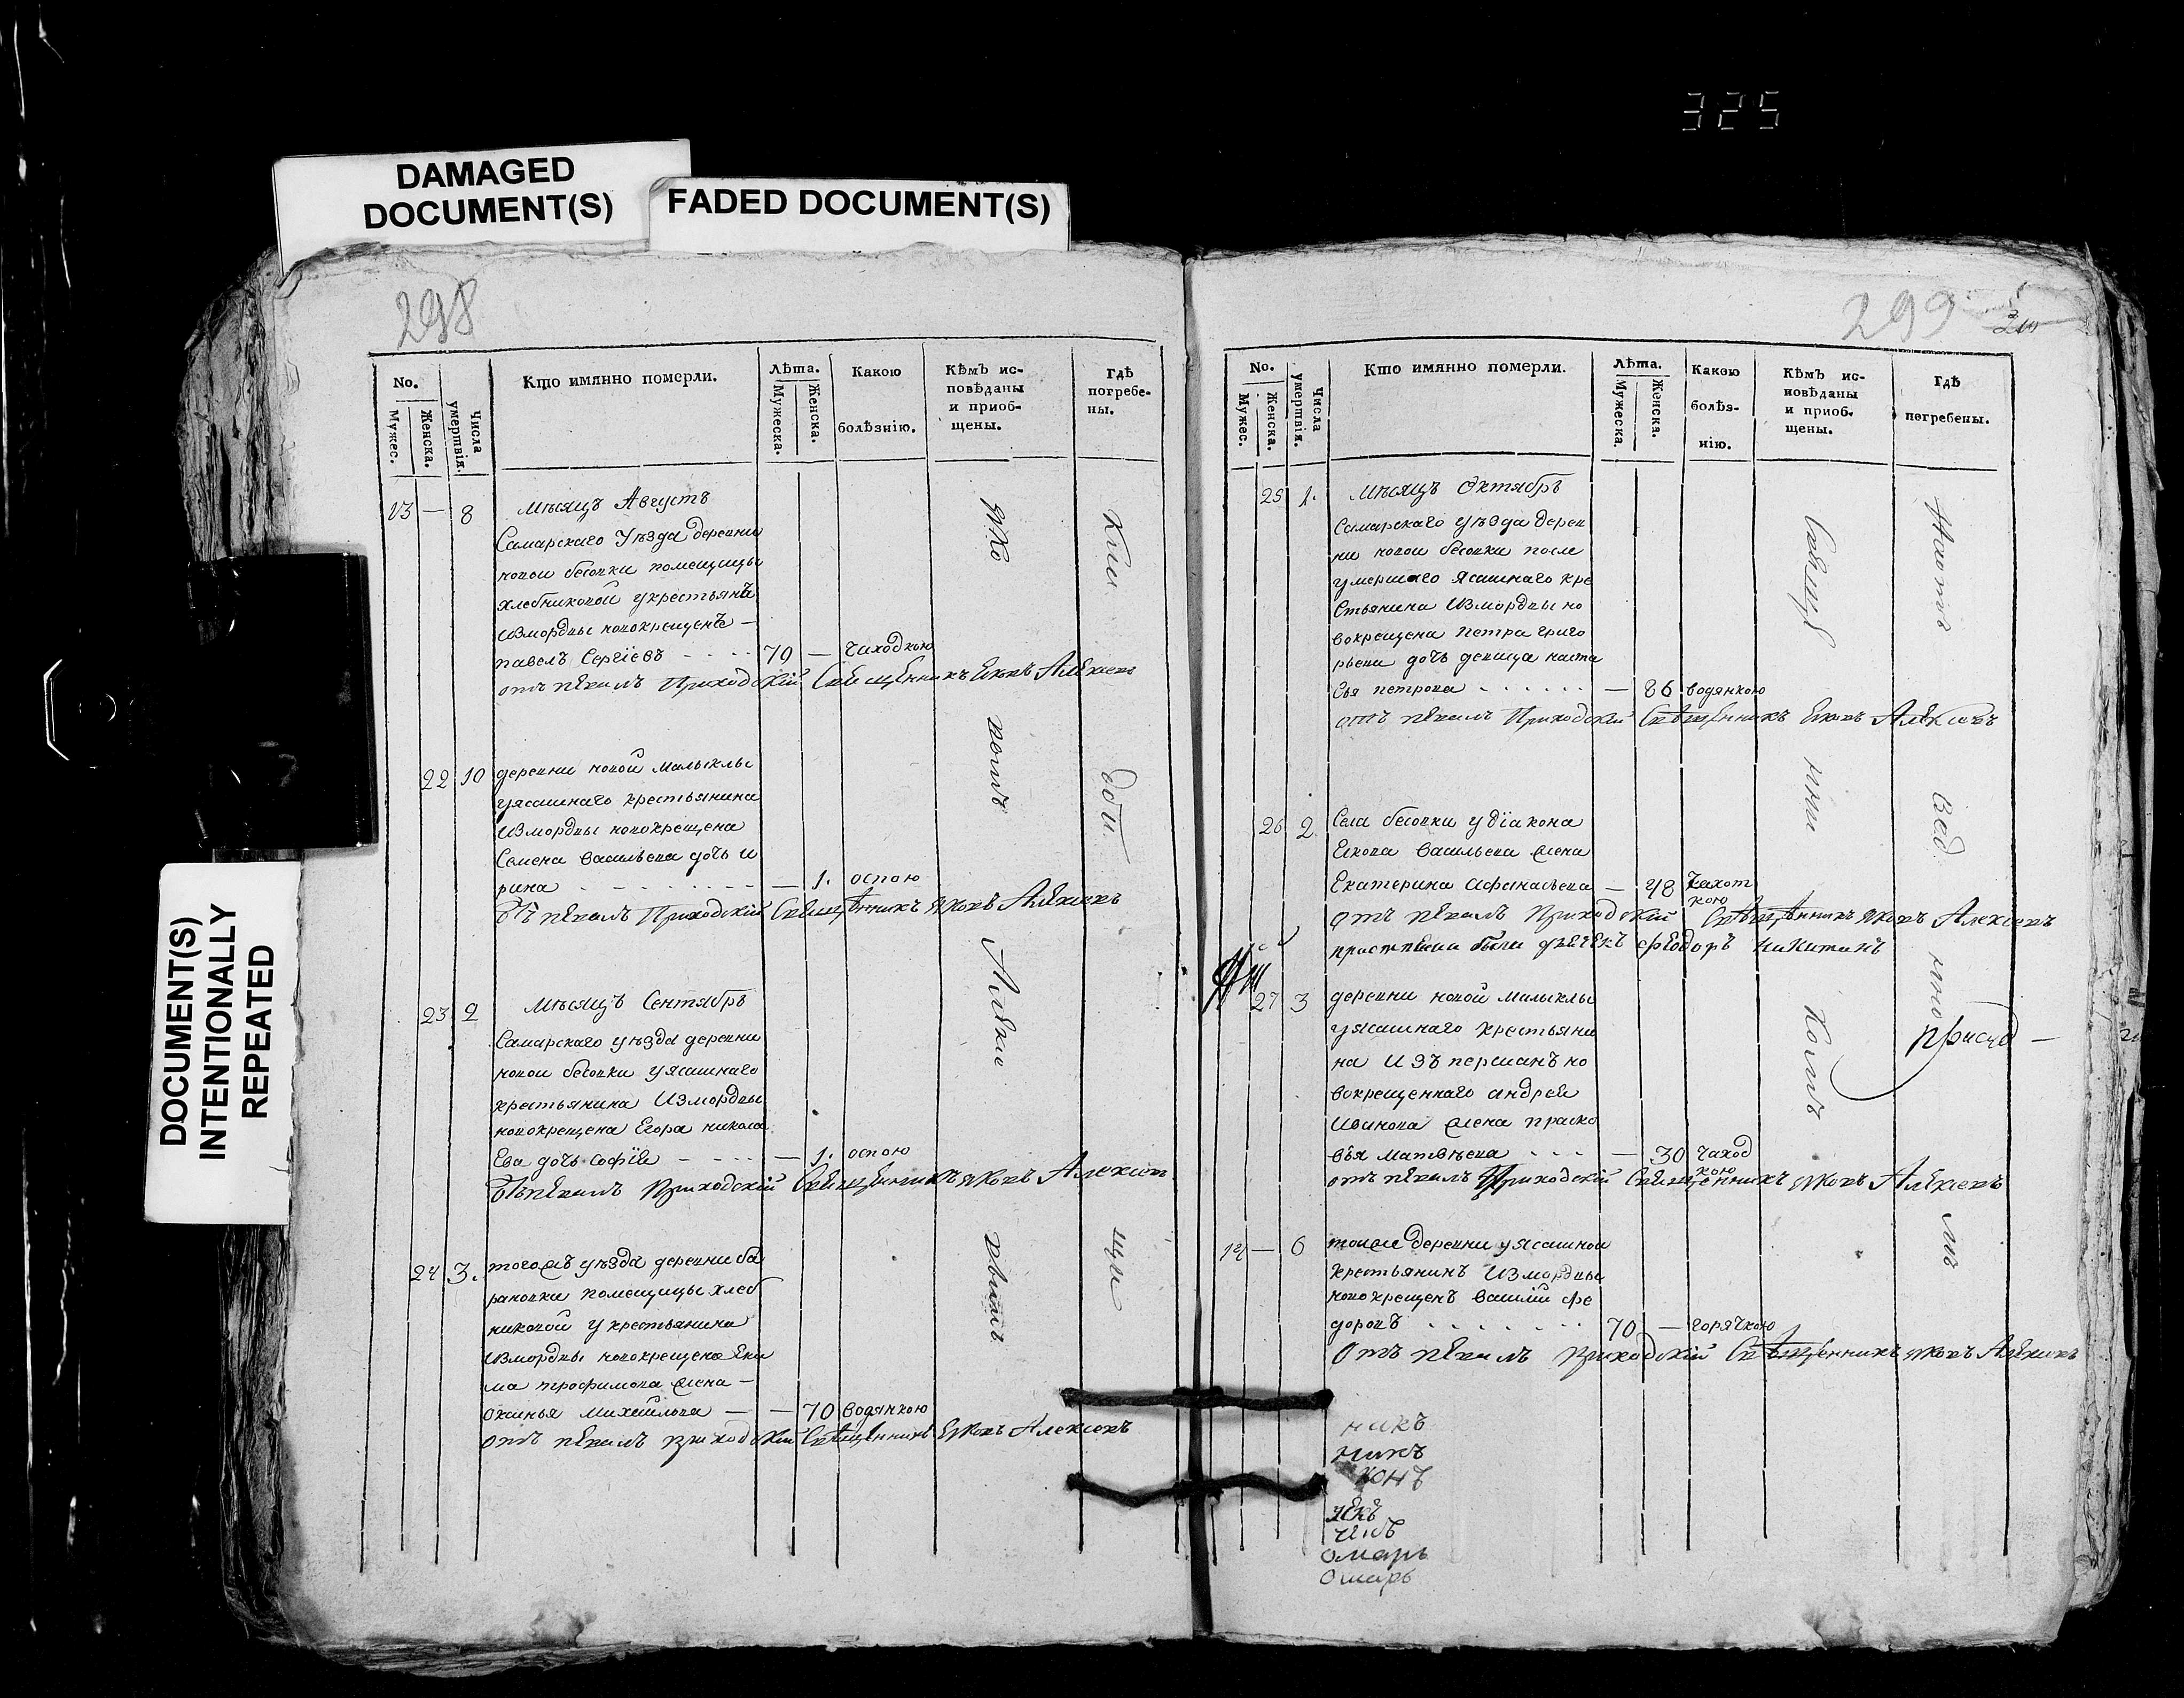 325
DAMAGED
DOCUMENT(S)
FADED DOCUMENT(S)
DOCUMENT(S)
INTENTIONALLY
REPEATED
298
No.
Мужес.
Женска.
Числа
умертвія.
Кто имянно померли.
Лѣта.
Мужеска.
Женска.
Какою
болѣзнію.
Кѣмъ ис-
повѣданы
и приоб-
щены.
Гдѣ
погребе-
ны.
13 — 8 Мѣсяцъ Августъ
Самарскаго Уѣзда деревни
новои бесовки помещицы
хлебниковой укрестьянъ
измордвы новокрещенъ —
павелъ Сергїевъ - - - - 70 — чаходкою
отъ певалъ Приходскїй Свещенникъ Яковъ Алексеевъ
22 10 деревни новой малыклы
уясашнаго крестьянина
измордвы новокрещена
Семена васильева дочь и
рина - - - - - — 1. оспою
отъ певалъ Приходскїй Священникъ Яковъ Алексеевъ
23 2 Мѣсяцъ Сентябръ
Самарскаго уѣзда деревни
новои бесовки уясашнаго
крестьянина Измордвы
новокрещена Егора никола
Ева дочь софїя - - - — 1. оспою
отъ певалъ Приходскїй Священникъ Яковъ Алексеев
24 3. тогожъ уѣзда деревни ба
рановки помещицы хлеб
никовой у крестьянина
измордвы новокрещена Еки
ма трофимова жена —
окинья михайлова — — 70 водянкою
отъ певалъ приходскїй Священникъ Яковъ Алексеевъ
299
No.
Мужес.
Женска.
Числа
умертвія.
Кто имянно померли.
Лѣта.
Мужеска.
Женска.
Какою
болѣз-
нію.
Кѣмъ ис-
повѣданы
и приоб-
щены.
Гдѣ
погребены.
25 1. Мѣсяцъ Октябръ
Самарскаго уѣзда дерев
ни новои бесовки после
умершаго ясашнаго кре
стьянина Измордвы но
вокрещена петра григо
рьева дочь девица наста
сья петрова - - - - - — 86 водянкою
отъ певалъ Приходскїй Священникъ Яковъ Алексеевъ
26 2 Села бесовки у дїакона
Екова васильева жена
Екатерина афанасьева — 48 чахот
кою
отъ певалъ Приходскїй Священникъ Яковъ Алексеевъ
Феодоръ никитинъ
27 3 деревни новой малыклы
уясашнаго крестьяни
на изъ першанъ но
вокрещеннаго андрея
иванова жена праско
вья матвѣева - - - — 30 чаход
кою
отъ певалъ Приходскїй Священникъ Яковъ Алексеевъ
14 — 6 тойже деревни уясашнои
крестьянинъ измордвы
новокрещенъ василїй фе
доровъ - - - - - 70 — горячкою
отъ певалъ приходскїй Священникъ Яковъ Алексеевъ
никъ
никъ
конъ
омарь
омарь